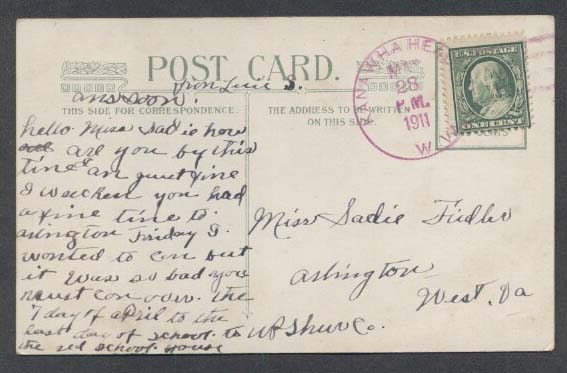 POST CARD.
from Lucie S.
ans soon!
THIS SIDE FOR CORRESPONDENCE.
THE ADDRESS TO BE WRITTEN
ON THIS SIDE.
hello Miss Sadie how
are you by this
time an quiet fine
I recken you had
a fine time to
arlington Friday I
wonted to con but
it was so bad you
must con over. the
7 day of april to the
last day of school. to
the red school house
Miss Sadie Fidler
arlington
West. Va
UPShur Co.
KANAWHA HE
28
P.M.
1911
W. VA
U.S. POSTAGE
ONE CENT